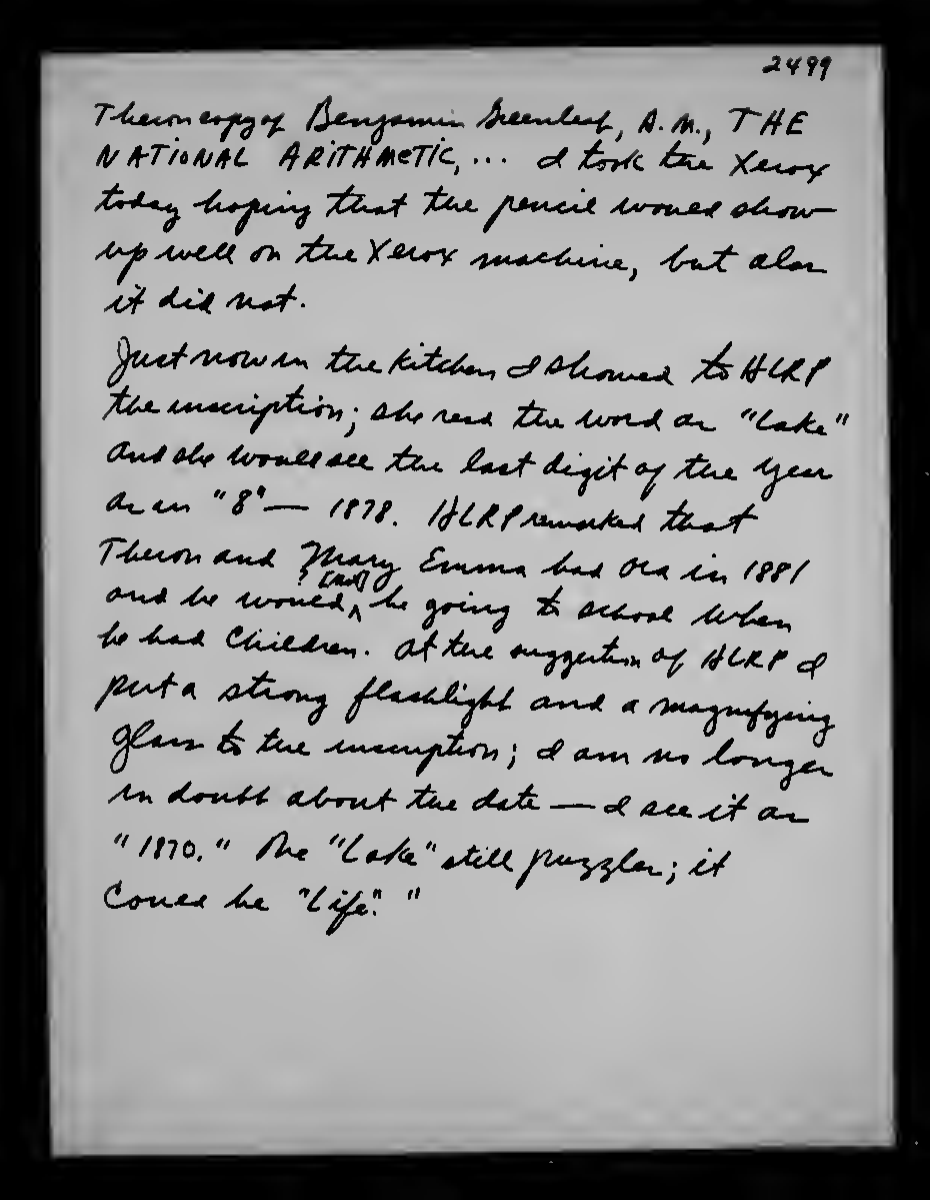 2499
Theron copy of Benjamin Greenleaf, A.M., THE
NATIONAL ARITHMETIC, ... I took the Xerox
today hoping that the pencil would show
up well on the Xerox machine, but alas
it did not.
Just now in the kitchen I showed to HLRP
the inscription; she read the word as "Lake"
and she would see the last digit of the year
as an "8" — 1878. HLRP remarked that
Theron and Mary Emma had Ora in 1881
? [not]
and he would ^ be going to school when
he had children. At the suggestion of HLRP I
put a strong flashlight and a magnifying
glass to the inscription; I am no longer
in doubt about the date — I see it as
"1870." The "Lake" still puzzles; it
could be "Life"."